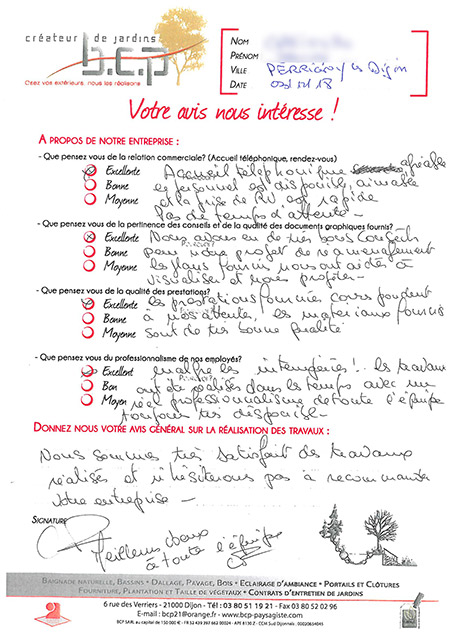 créateur de jardins
b.c.p
Osez vos extérieurs, nous les réalisons
NOM
PRÉNOM
VILLE PERRIGNY les Dijon
DATE
Votre avis nous intéresse !
A PROPOS DE NOTRE ENTREPRISE :
- Que pensez vous de la relation commerciale? (Accueil téléphonique, rendez-vous)
Excellente Accueil téléphonique agréable
Bonne le personnel est disponible, aimable
Moyenne et la prise de RV est rapide
Pas de temps d'attente -
- Que pensez vous de la pertinence des conseils et de la qualité des documents graphiques fournis?
Excellente Nous avons eu de très bons conseils
Bonne pour notre projet de réaménagement
Moyenne les plans fournis nous ont aidés à
visualiser et nous
- Que pensez vous de la qualité des prestations?
Excellente les prestations fournies correspondent
Bonne à nos attentes, les matériaux fournis
Moyenne sont de très bonne qualité
- Que pensez vous du professionnalisme de nos employés?
Excellent malgré les intempéries !.. les travaux
Bon ont été réalisés dans les temps avec un
Moyen réel professionnalisme de toute l'équipe
toujours très disponible -
DONNEZ NOUS VOTRE AVIS GÉNÉRAL SUR LA RÉALISATION DES TRAVAUX :
Nous sommes très satisfait des travaux
réalisés et n'hésiterons pas à recommander
votre entreprise -
SIGNATURE
Meilleurs vœux
à toute l'équipe
BAIGNADE NATURELLE, BASSINS • DALLAGE, PAVAGE, BOIS • ECLAIRAGE D'AMBIANCE • PORTAILS ET CLÔTURES
FOURNITURE, PLANTATION ET TAILLE DE VÉGÉTAUX • CONTRATS D'ENTRETIEN DE JARDINS
6 rue des Verriers - 21000 Dijon - Tél : 03 80 51 19 21 - Fax 03 80 52 02 96
E-mail : bcp21@orange.fr - www.bcp-paysagiste.com